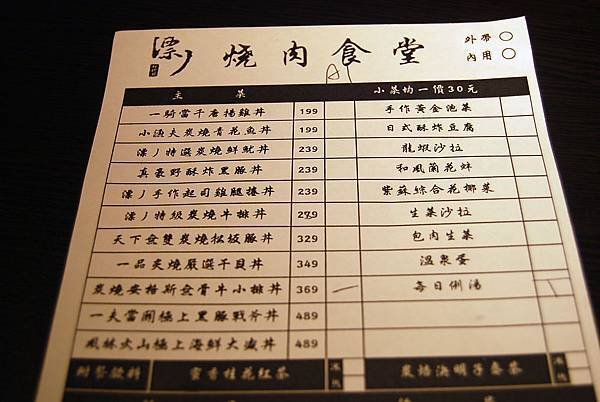 漂丿燒肉食堂
外帶○
內用○
A1
主菜 小菜均一價30元
一騎當千唐揚雞丼 199 手作黃金泡菜
小漁夫炭燒青花魚丼 199 日式酥炸豆腐
漂丿特選炭燒鮮魷丼 239 龍蝦沙拉
真豪野酥炸里豚丼 239 和風蘭花蚌
漂丿手作起司雞腿捲丼 239 紫蘇綜合花椰菜
漂丿特級炭燒牛排丼 279 生菜沙拉
天下無雙炭燒松板豚丼 329 包肉生菜
一品炙燒嚴選干貝丼 349 溫泉蛋
炭燒安格斯無骨牛小排丼 369 一 每日例湯 \
一夫當關極上里豚戰斧丼 489
風林火山極上海鮮大漁丼 489
附餐飲料 蜜香桂花紅茶 冰 炭焙決明子麥茶 冰